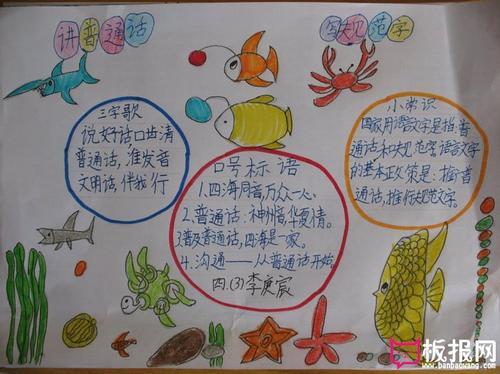 讲普通话
写规范字
三字歌
说好话口齿清
普通话，准发音
文明话，伴我行
口号标语
1.四海同音，万众一心。
2.普通话：神州音，华夏情。
3普及普通话，四海是一家。
4.沟通——从普通话开始
四.(3)李庚宸
小常识
国家用语言文字是指：普
通话和规范字，语言文字
的基本政策是：推广普
通话，推行规范文字。
板报网
www.banbaowang.com